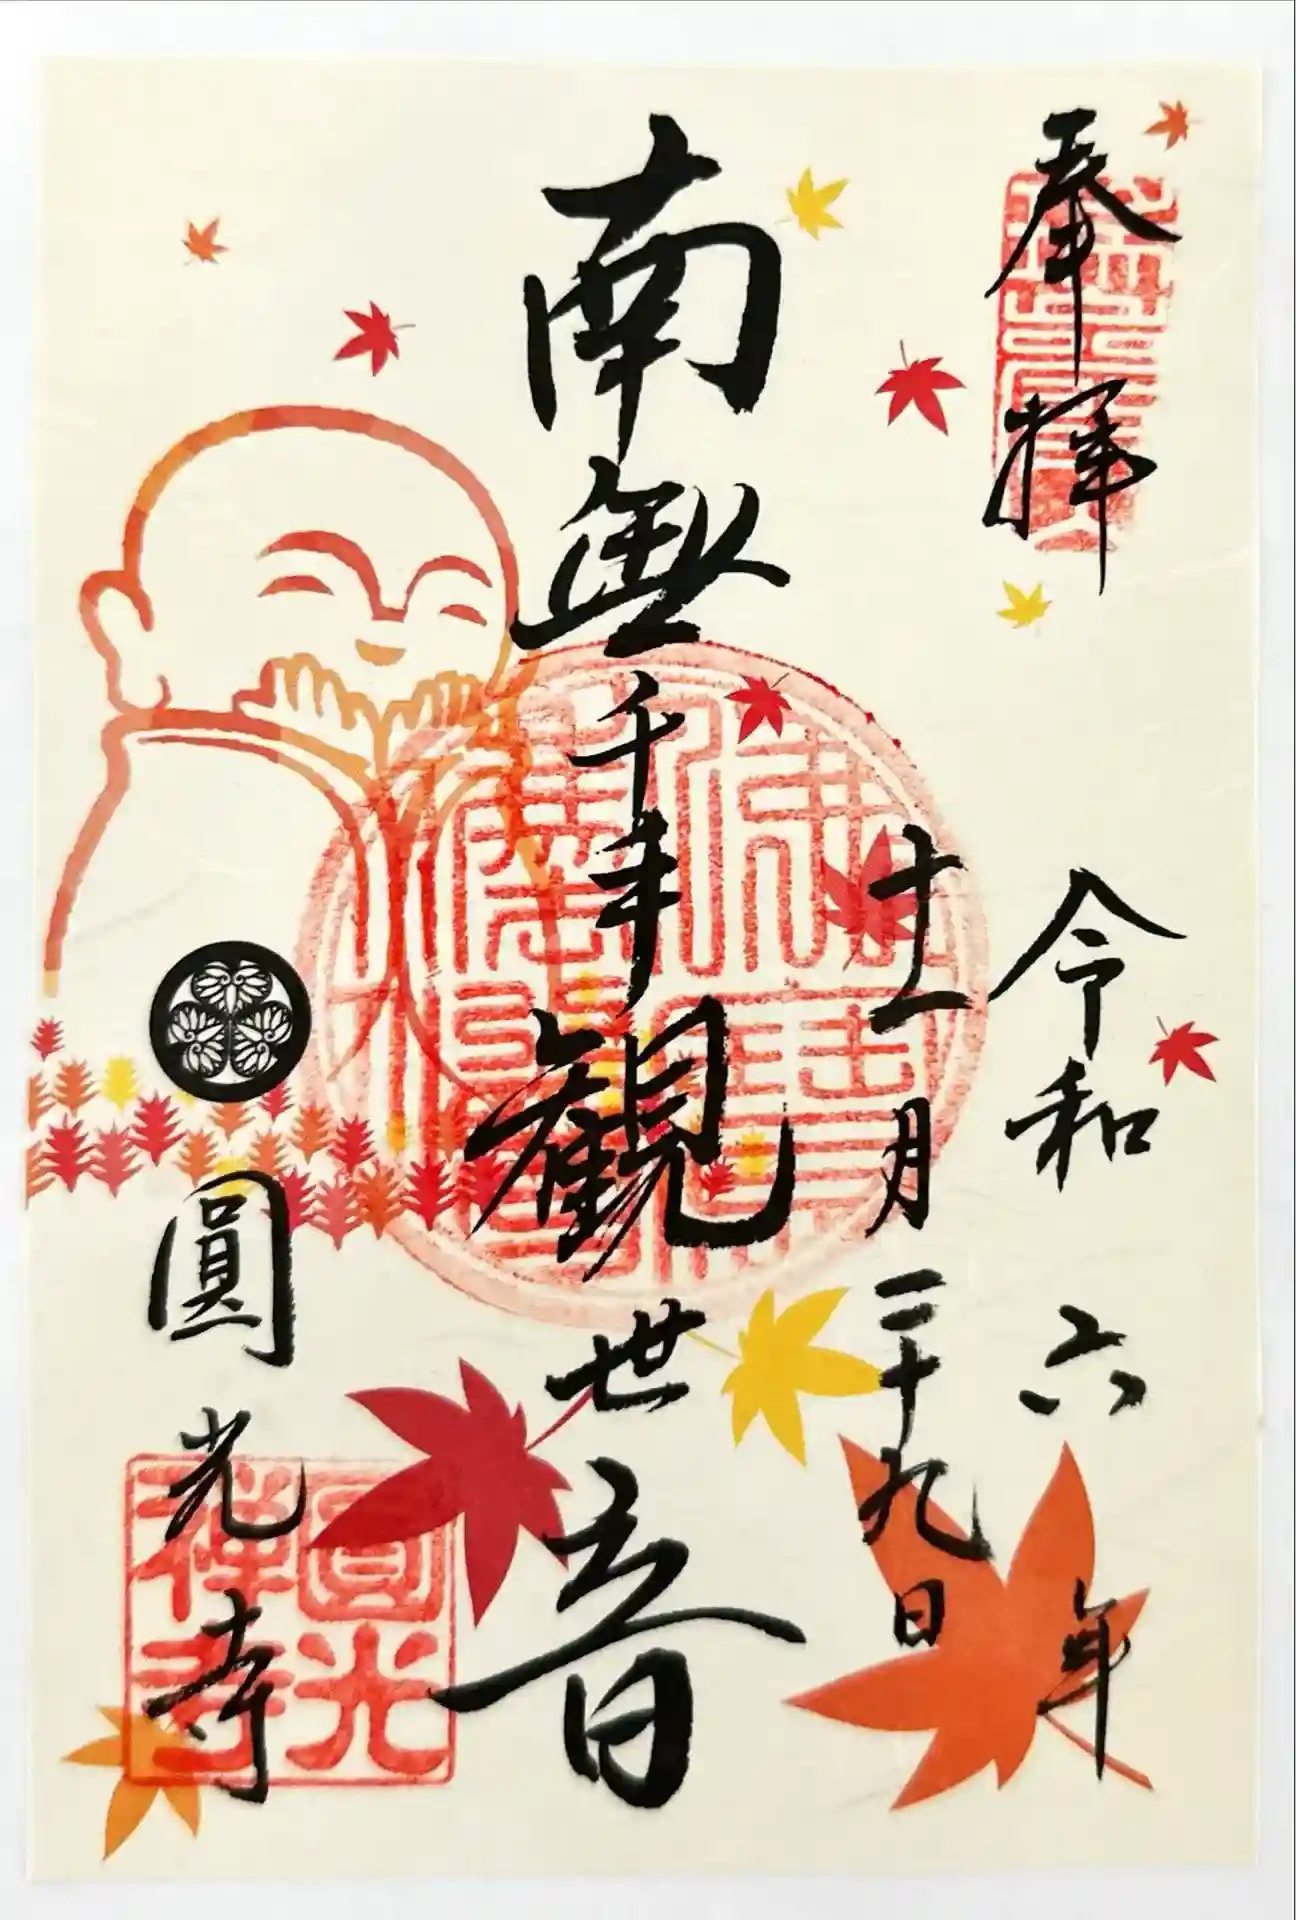 奉拝
令和六年
十一月二十九日
南無千手観世音
圓光寺
佛法僧寶
圓光禅寺